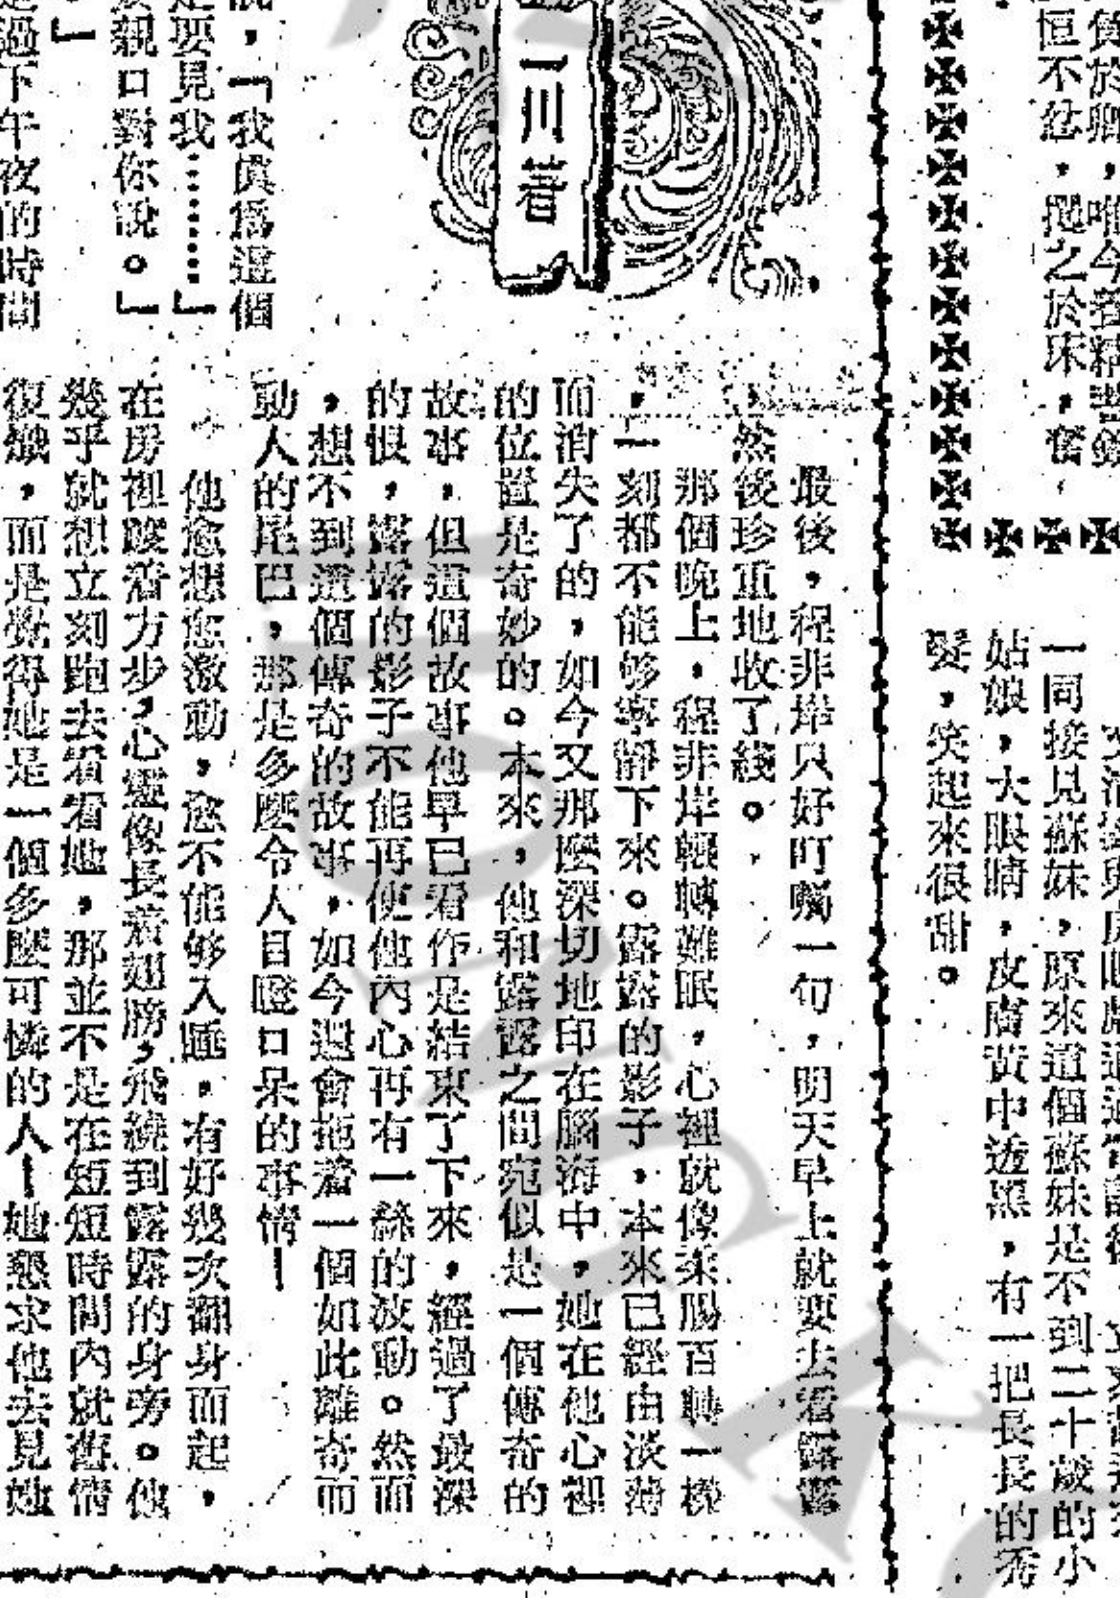 恒不忿，拋之於床，奮
一同接見蘇妹，原來這個蘇妹是不到二十歲的小
姑娘，大眼睛，皮膚黃中透黑，有一把長長的秀
髮，笑起來很甜。
一川著
說，「我眞爲這個
是要見我………」
親口對你說。」
過下午夜的時間
最後，程非岸只好叮囑一句，明天早上就要去看露露
，然後珍重地收了綫。
那個晚上，程非岸輾轉難眠，心裡就像柔腸百轉一樣
，一刻都不能够寧靜下來。露露的影子，本來已經由淡薄
而消失了的，如今又那麼深切地印在腦海中，她在他心裡
的位置是奇妙的。本來，他和露露之間宛似是一個傳奇的
故事，但這個故事他早已看作是結束了下來，經過了最深
的恨，露露的影子不能再使他內心再有一絲的波動。然而
，想不到這個傳奇的故事，如今還會拖着一個如此離奇而
動人的尾巴，那是多麼令人目瞪口呆的事情！
他愈想愈激動，愈不能够入睡，有好幾次翻身而起，
在房裡踱着方步，心靈像長着翅膀，飛繞到露露的身旁。他
幾乎就想立刻跑去看看她，那並不是在短短時間內就舊情
復熾，而是覺得她是一個多麼可憐的人！她懇求他去見她
HONG K